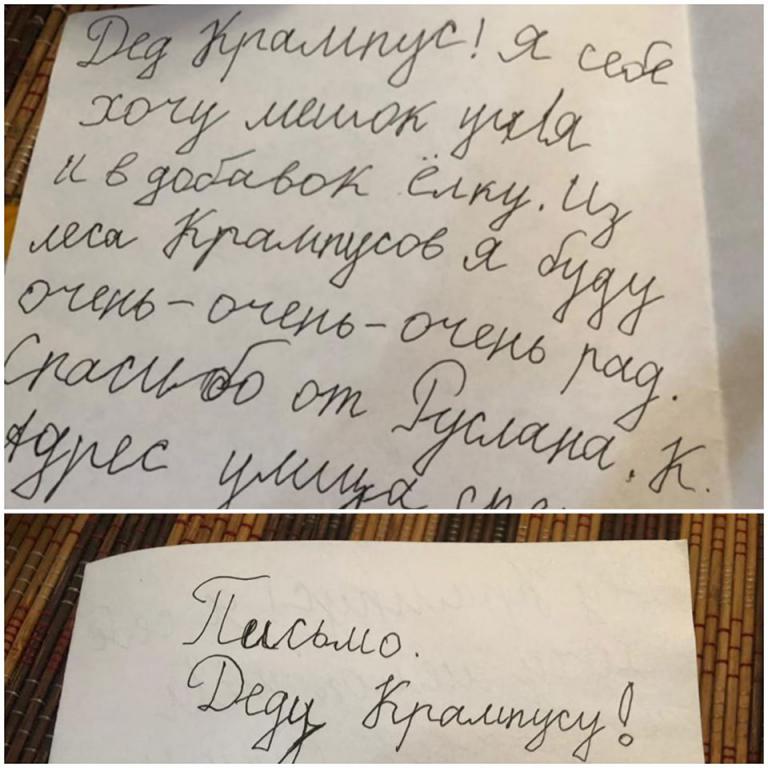 Дед Крампус! Я себе
хочу мешок угля
и в добавок ёлку. Из
леса Крампусов я буду
очень-очень-очень рад.
Спасибо от Руслана. К.
Адрес улица
Письмо.
Деду Крампусу!